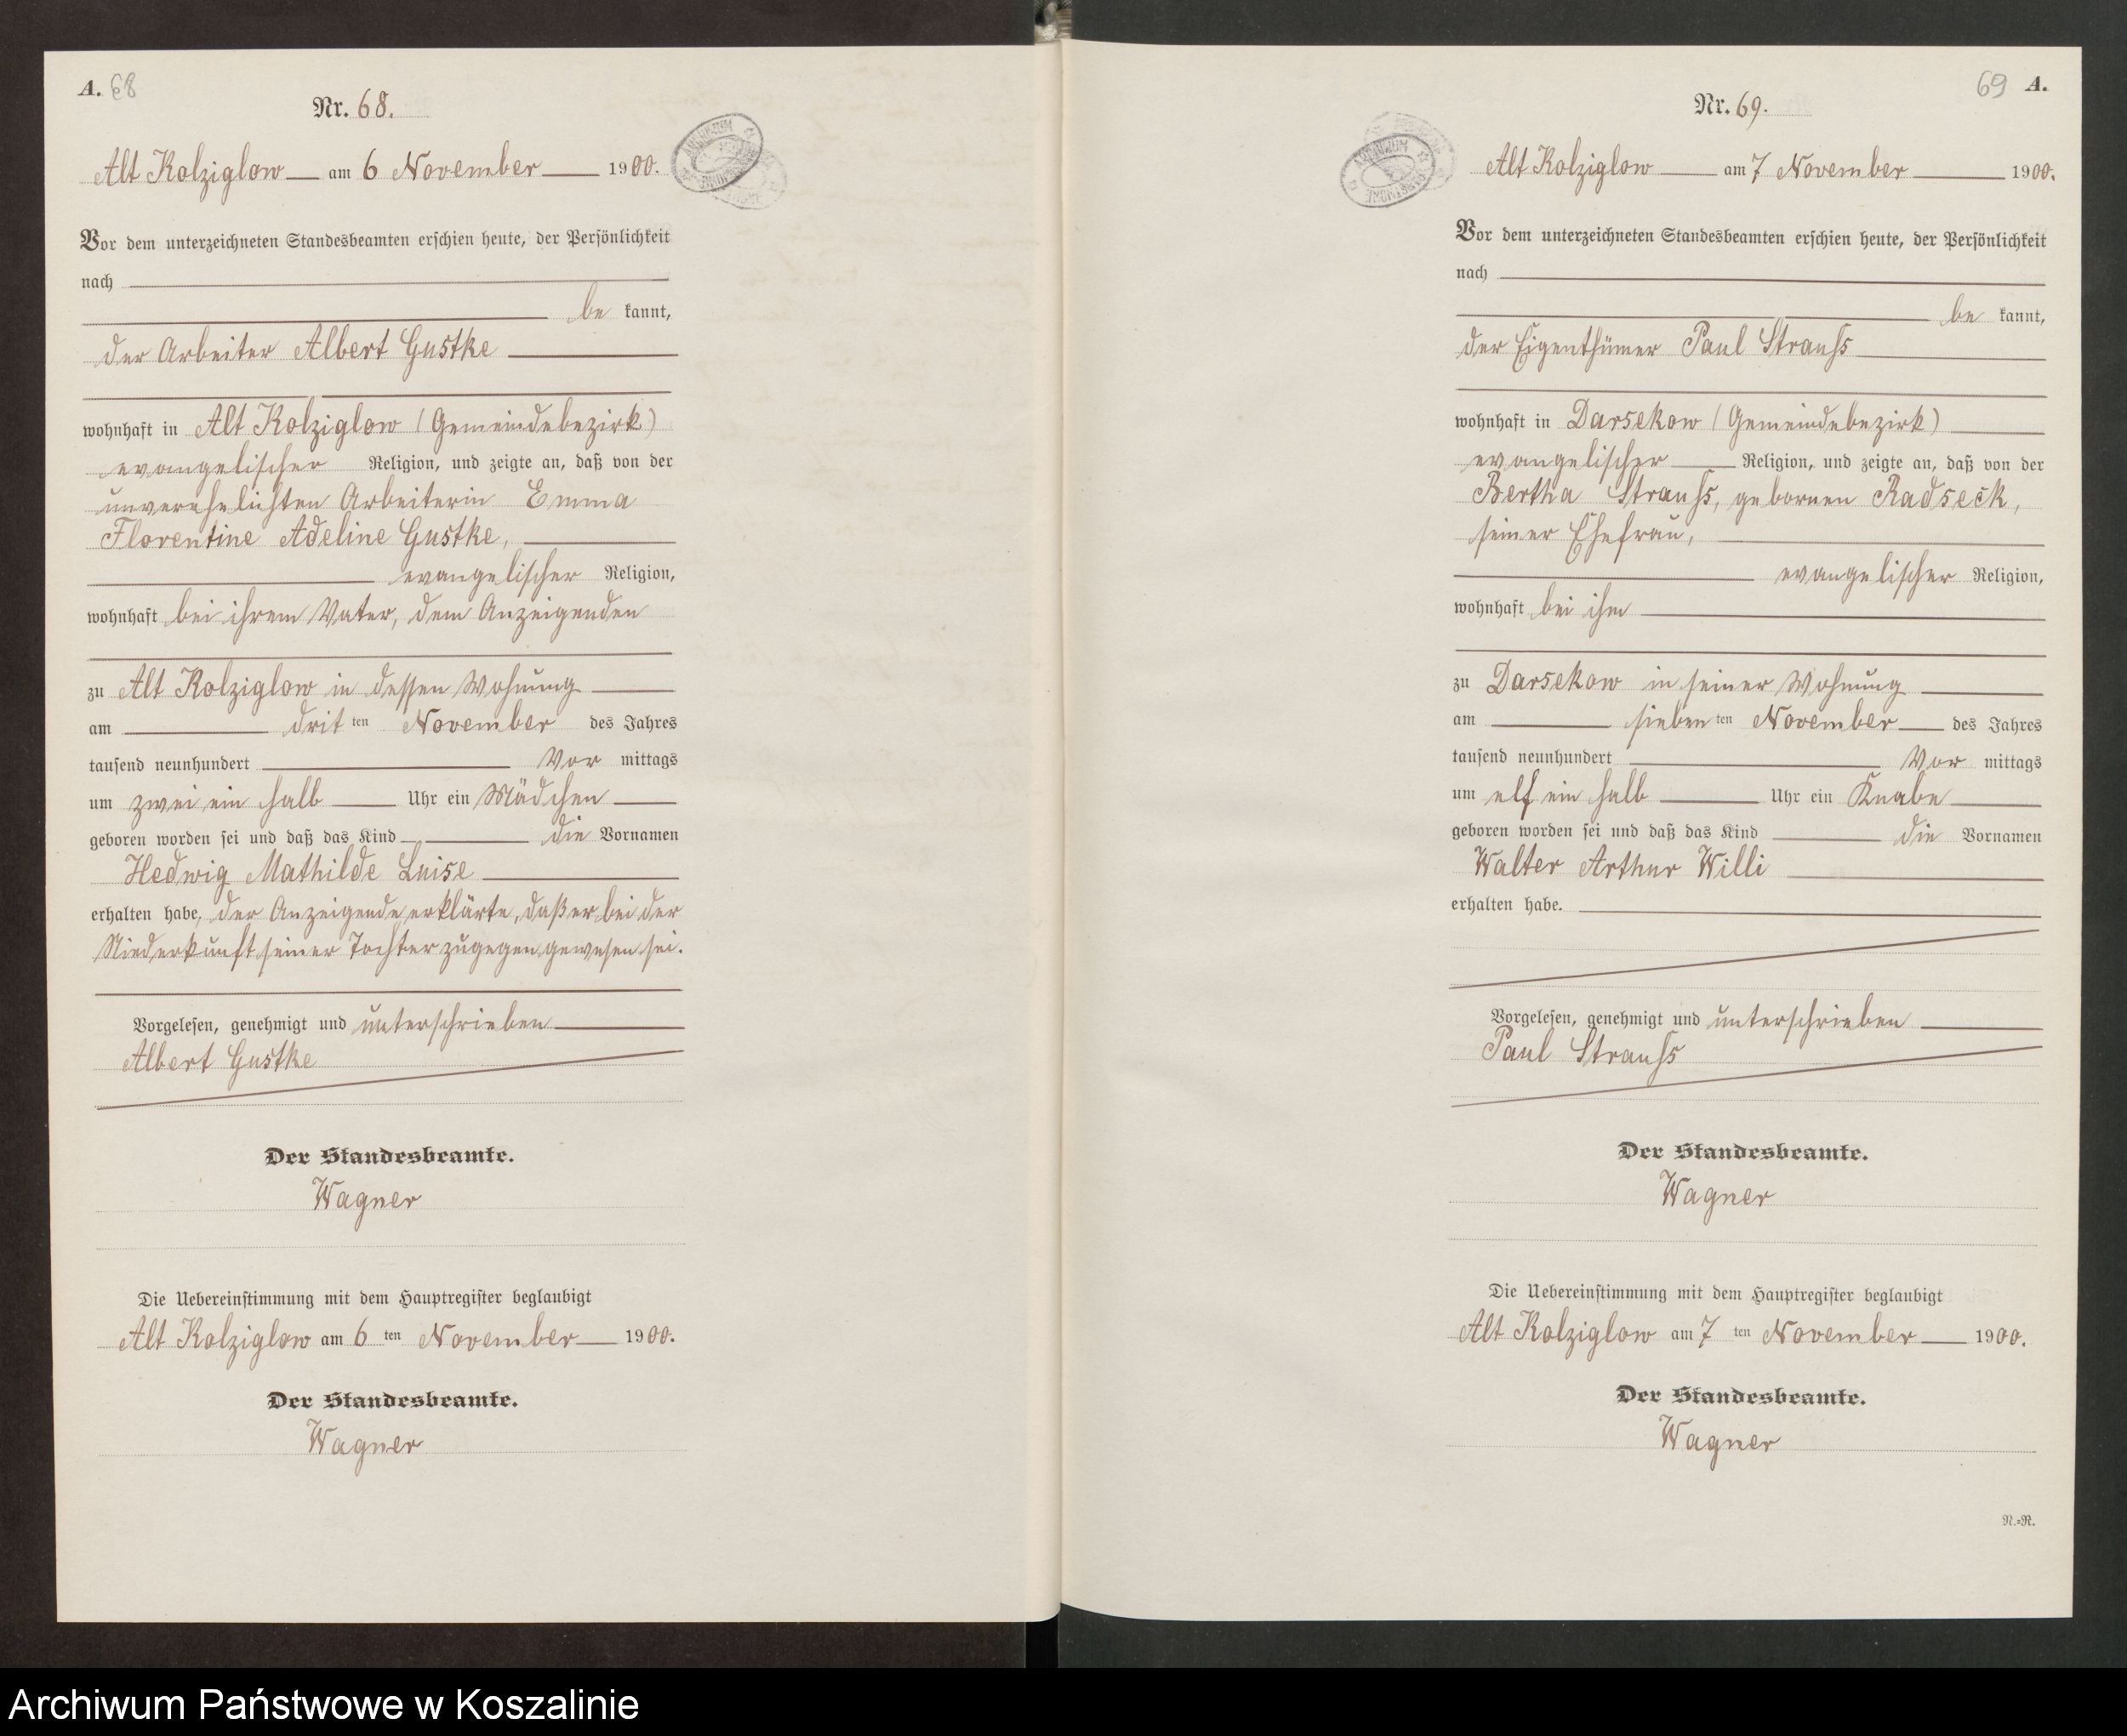 A. 68
Nr. 68.
Alt Kolziglow am 6 November 1900.
Vor dem unterzeichneten Standesbeamten erschien heute, der Persönlichkeit
nach
be kannt,
der Arbeiter Albert Gustke
wohnhaft in Alt Kolziglow (Gemeindebezirk)
evangelischer Religion, und zeigte an, daß von der
unverehelichten Arbeiterin Emma
Florentine Adeline Gustke,
evangelischer Religion,
wohnhaft bei ihrem Vater, dem Anzeigenden
zu Alt Kolziglow in dessen Wohnung
am dritten November des Jahres
tausend neunhundert Vor mittags
um zwei ein halb Uhr ein Mädchen
geboren worden sei und daß das Kind die Vornamen
Hedwig Mathilde Luise
erhalten habe, der Anzeigende erklärte, daß er bei der
Niederkunft seiner Tochter zugegen gewesen sei.
Vorgelesen, genehmigt und unterschrieben
Albert Gustke
Der Standesbeamte.
Wagner
Die Uebereinstimmung mit dem Hauptregister beglaubigt
Alt Kolziglow am 6 ten November 1900.
Der Standesbeamte.
Wagner
69 A.
Nr. 69.
Alt Kolziglow am 7 November 1900.
Vor dem unterzeichneten Standesbeamten erschien heute, der Persönlichkeit
nach
be kannt,
der Eigenthümer Paul Strauß
wohnhaft in Darsekow (Gemeindebezirk)
evangelischer Religion, und zeigte an, daß von der
Bertha Strauß, gebornen Radseck,
seiner Ehefrau,
evangelischer Religion,
wohnhaft bei ihm
zu Darsekow in seiner Wohnung
am siebenten November des Jahres
tausend neunhundert Vor mittags
um elf ein halb Uhr ein Knabe
geboren worden sei und daß das Kind die Vornamen
Walter Arthur Willi
erhalten habe.
Vorgelesen, genehmigt und unterschrieben
Paul Strauß
Der Standesbeamte.
Wagner
Die Uebereinstimmung mit dem Hauptregister beglaubigt
Alt Kolziglow am 7 ten November 1900.
Der Standesbeamte.
Wagner
N.=R.
Archiwum Państwowe w Koszalinie